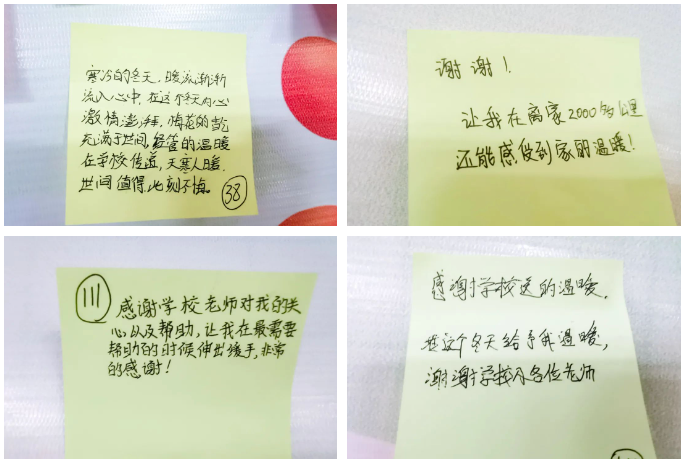 寒冷的冬天，暖流渐渐
流入心中，在这个冬天内心
激情澎湃，梅花的乾
充满于世间，经管的温暖
在学校传递，天寒人暖
世间值得，此刻不悔。
38
谢谢！
让我在离家2000多公里
还能感受到家的温暖！
111
感谢学校老师对我的关
心以及帮助，让我在最需要
帮助的时候伸出援手，非常
的感谢！
感谢学校送的温暖，
在这个冬天给予我温暖，
谢谢学校及各位老师